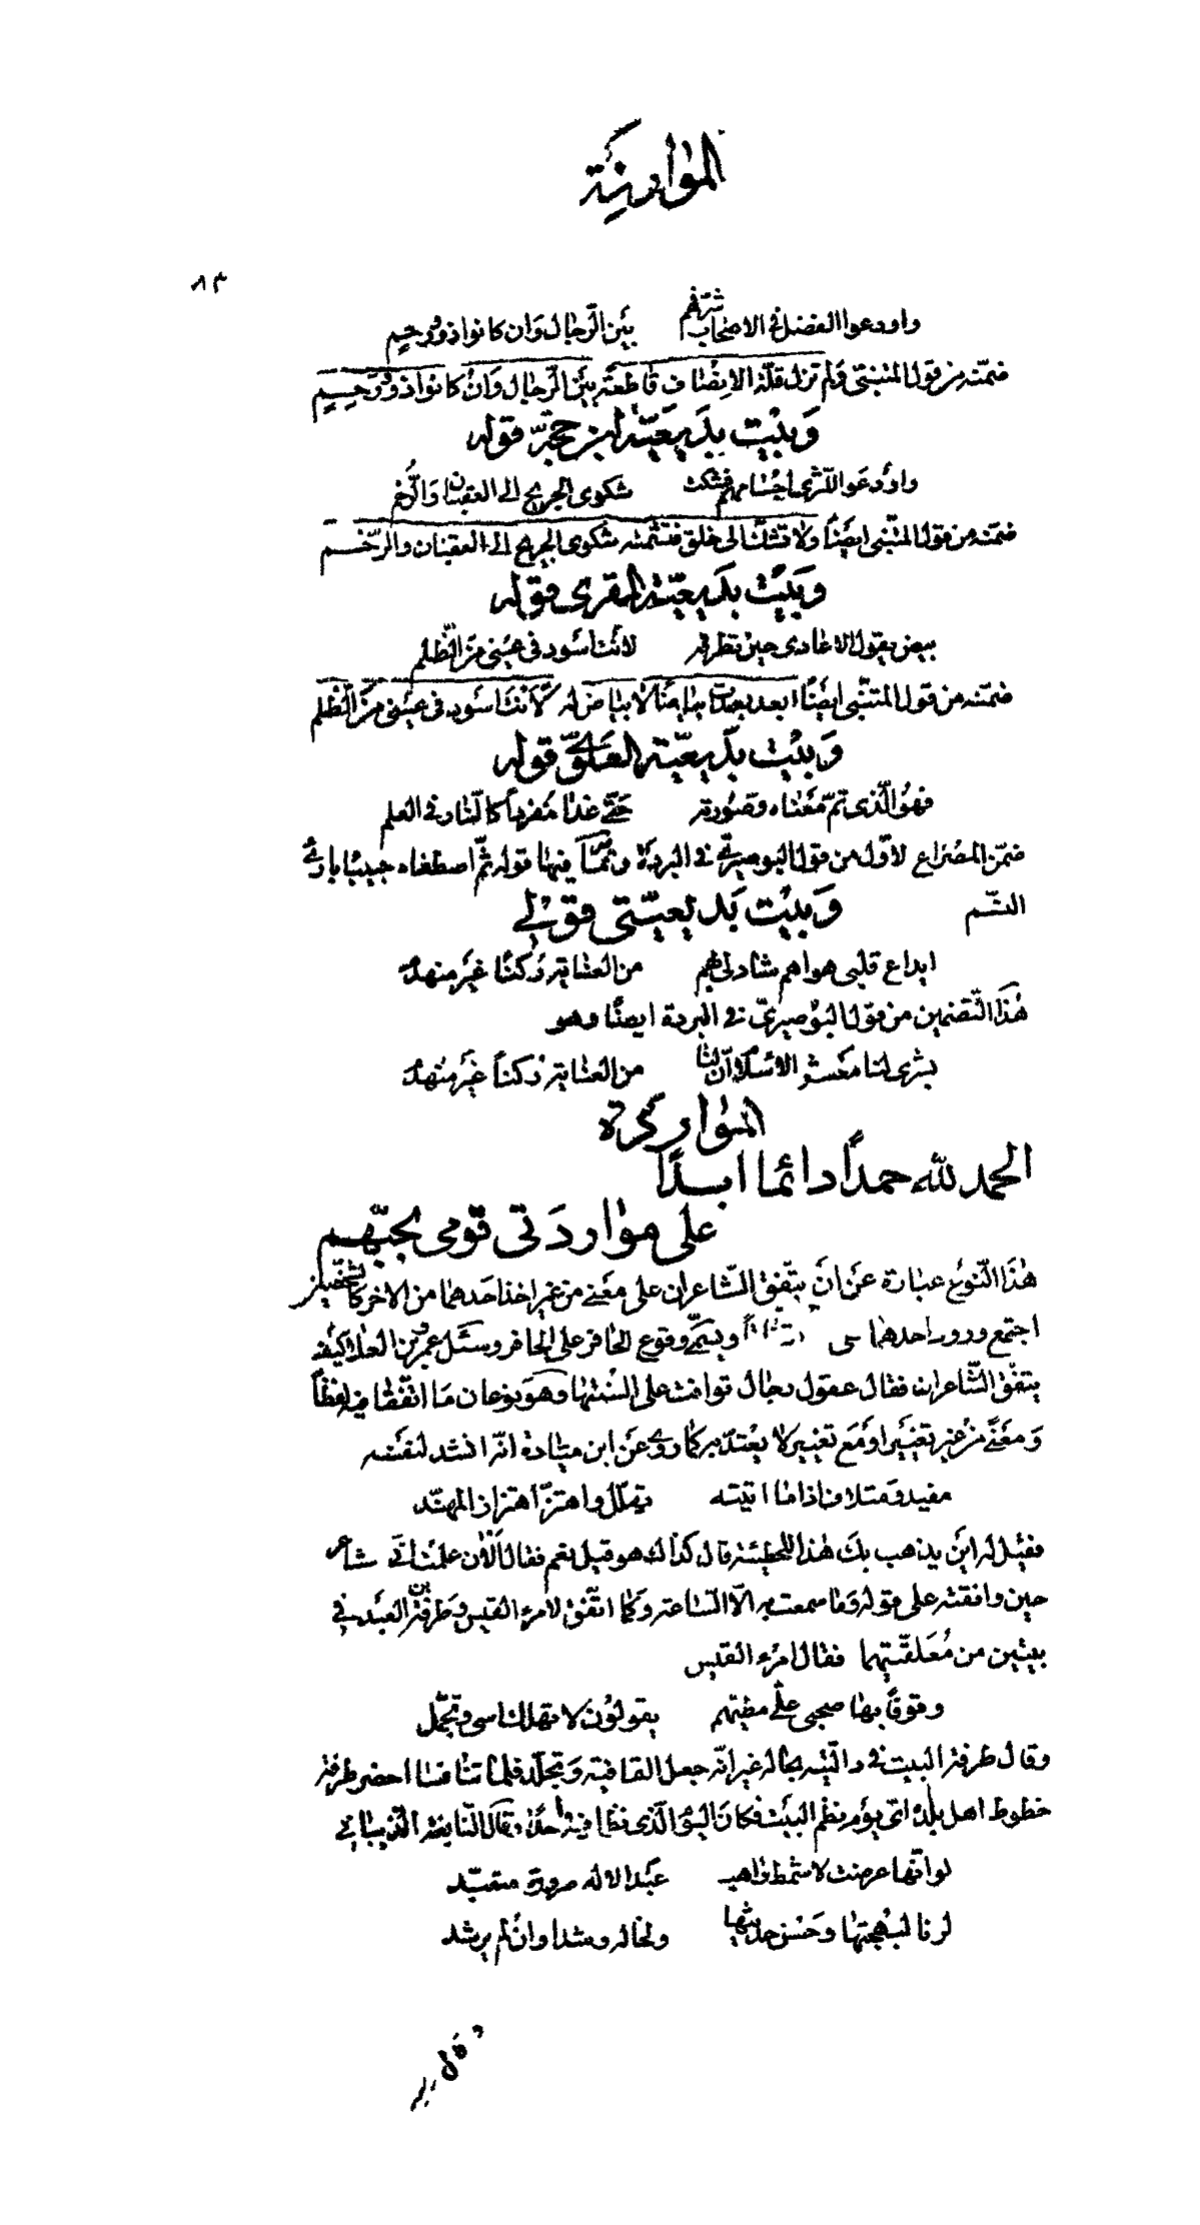 الموارنة
٨٣
واودعوا الفضل في الاصحاب شرفهم بين الرجال وان كانوا ذوو رحم
ضمّنه من قول المتنبّي ولم تزل قلّة الانصاف قاطعة بين الرّجال وان كانوا ذوو رحم
وبيت بديعيّة ابن حجّة قوله
واودعوا للثّرى اجسامهم فشكت شكوى الجريح الى العقبان والرّخم
ضمّنه من قول المتنبّي ايضًا ولا تشكّ الى خلق فتشمته شكوى الجريح الى العقبان والرّخم
وبيت بديعيّة المقرى قوله
بيض يقول الاعادى حين تطرقه لانت اسود في عيني من الظّلم
ضمّنه من قول المتنبّي ايضًا ابعد بعدت بياضًا لا بياض له لانت اسود في عيني من الظّلم
وبيت بديعيّة العلويّ قوله
فهو الّذى تمّ معناه وصورته حتّى غدا مفردًا كالنّار في العلم
ضمّن المصراع الاوّل من قول البوصيريّ في البردة وتمامًا فيها قوله ثمّ اصطفاه حبيبًا بارئ
النّسم
وبيت بديعيّتي فقولي
ايداع قلبي هواهم شاد لي بهم من العناية ركنًا غير منهدم
هذا التّضمين من قول البوصيريّ في البردة ايضًا وهو
بشرى لنا معشر الاسلام انّ لنا من العناية ركنًا غير منهدم
المواردة
الحمد لله حمدًا دائما ابدًا
على مواردتي قومي بحبّهم
هذا النّوع عبارة عن ان يتّفق الشّاعران على معنى من غير اخذ احدهما من الآخر كشخصين
اجتمع ورود احدهما ويسمّى وقوع الحافر على الحافر وسئل عمرو بن العلاء كيف
يتفّق الشّاعران فقال عقول رجال توافت على السنتها وهو نوعان ما اتّفقا فيه لفظًا
ومعنًى من غير تغيير او مع تغيير لا يعتدّ به كما روى عن ابن ميّادة انّه انشد لنفسه
مفيد ومتلاف اذا ما اتيته تهلّل واهتزّ اهتزاز المهنّد
فقيل له اين يذهب بك هذا للحطيئة قال كذلك هو قيل نعم فقال الآن علمت اني شاعر
حين وافقته على قوله وما سمعت به الّا السّاعة وكما اتّفق لامرء القيس وطرفة بن العبد في
بيتين من معلّقتيهما فقال امرء القيس
وقوفًا بها صحبي علىّ مطيّهم يقولون لا تهلك اسى وتجمّل
وقال طرفة البيت في داليّته بحاله غير انّه جعل القافية وتجلّد فلمّا تنافسا احضر طرفة
خطوط اهل بلده اىّ يوم نظم البيت فكان اليوم الّذى نظما فيه واحدًا وقال النّابغة الذّبياني
لو انّها عرضت لاشمط راهب عبد الاله صرورة متعبّد
لرنا لبهجتها وحسن حديثها ولخاله رشدا وان لم يرشد
وقال